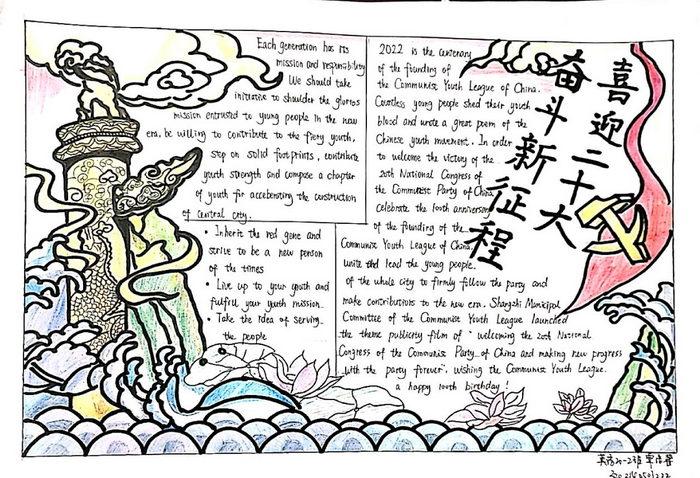 Each generation has its
mission and responsibility
We should take
initiative to shoulder the glorious
mission entrusted to young people in the new
era, be willing to contribute to the fiery youth,
step on solid footprints, contribute
youth strength and compose a chapter
of youth for accelerating the construction
of central city.
• Inherit the red gene and
strive to be a new person
of the times
• Live up to your youth and
fulfill your youth mission.
• Take the idea of serving
the people
2022 is the centenary
of the founding of
the Communist Youth League of China.
Countless young people shed their youth
blood and wrote a great poem of the
Chinese youth movement. In order
to welcome the victory of the
20th National Congress of
the Communist Party of China
Celebrate the 100th anniversary
of the founding of the
Communist Youth League of China.
unite and lead the young people
of the whole city to firmly follow the party and
make contributions to the new era. Shangzhi Municipal
Committee of the Communist Youth League launched
the theme publicity film of " welcoming the 20th National
Congress of the Communist Party of China and making new progress
with the party forever", wishing the Communist Youth League.
a happy 100th birthday!
喜迎二十大
奋斗新征程